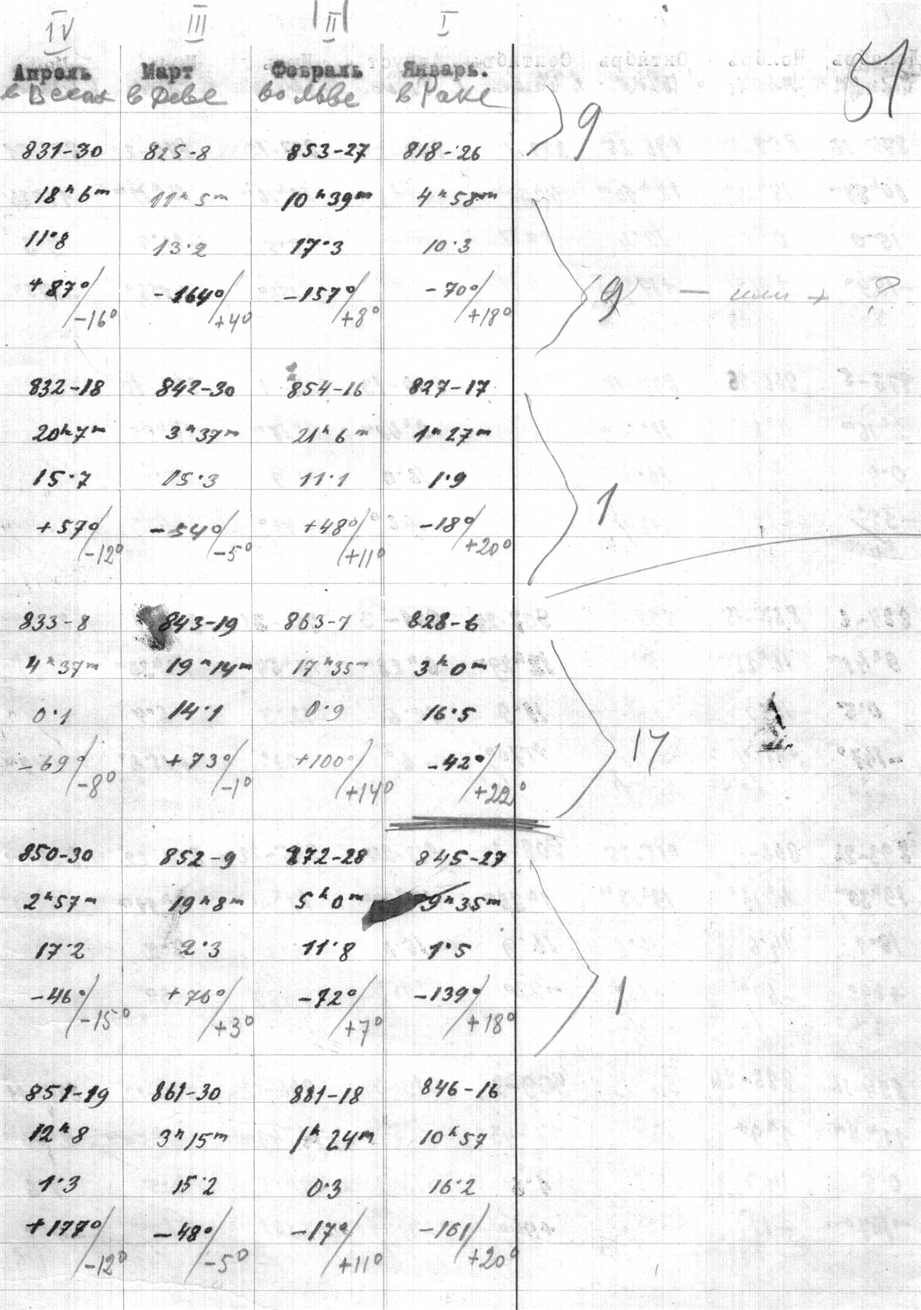 IV III II I
Апрель Март Февраль Январь. 51
в Весах в Деве во Льве в Раке
9
831-30 825-8 853-27 818-26
18ʰ6ᵐ 11ʰ5ᵐ 10ʰ39ᵐ 4ʰ58ᵐ
11·8 13·2 17·3 10·3
+87°/-16° -164°/+4° -157°/+8° -70°/+18° 9 — или + ?
832-18 842-30 854-16 827-17
20ʰ7ᵐ 3ʰ37ᵐ 21ʰ6ᵐ 1ʰ27ᵐ
15·7 15·3 11·1 1·9 1
+57°/-12° -54°/-5° +48°/+11° -18°/+20°
833-8 843-19 863-7 828-6
4ʰ37ᵐ 19ʰ14ᵐ 17ʰ35ᵐ 3ʰ0ᵐ
0·1 14·1 0·9 16·5
-69°/-8° +73°/-1° +100°/+14° -42°/+22° 17
850-30 852-9 872-28 845-27
2ʰ57ᵐ 19ʰ8ᵐ 5ʰ0ᵐ 9ʰ35ᵐ
17·2 2·3 11·8 1·5
-46°/-15° +76°/+3° -72°/+7° -139°/+18° 1
851-19 861-30 881-18 846-16
12ʰ8 3ʰ15ᵐ 1ʰ24ᵐ 10ʰ57
1·3 15·2 0·3 16·2
+177°/-12° -48°/-5° -17°/+11° -161/+20°